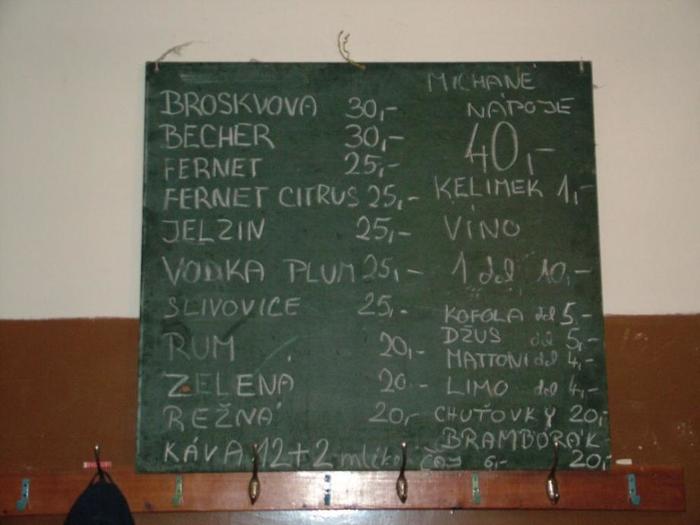 BROSKVOVA 30,-
BECHER 30,-
FERNET 25,-
FERNET CITRUS 25,-
JELZIN 25,-
VODKA PLUM 25,-
SLIVOVICE 25,-
RUM 20,-
ZELENÁ 20-
REŽNÁ 20,-
KÁVA 12+2 mlíko
MICHANÉ
NÁPOJE
40,-
KELIMEK 1,-
VÍNO
1 del 10,-
KOFOLA del 5,-
DŽUS del 5,-
MATTONI del 4,-
LIMO del 4,-
CHUŤOVKY 20,-
BRAMBORÁK
20,-
ČAJ 6,-